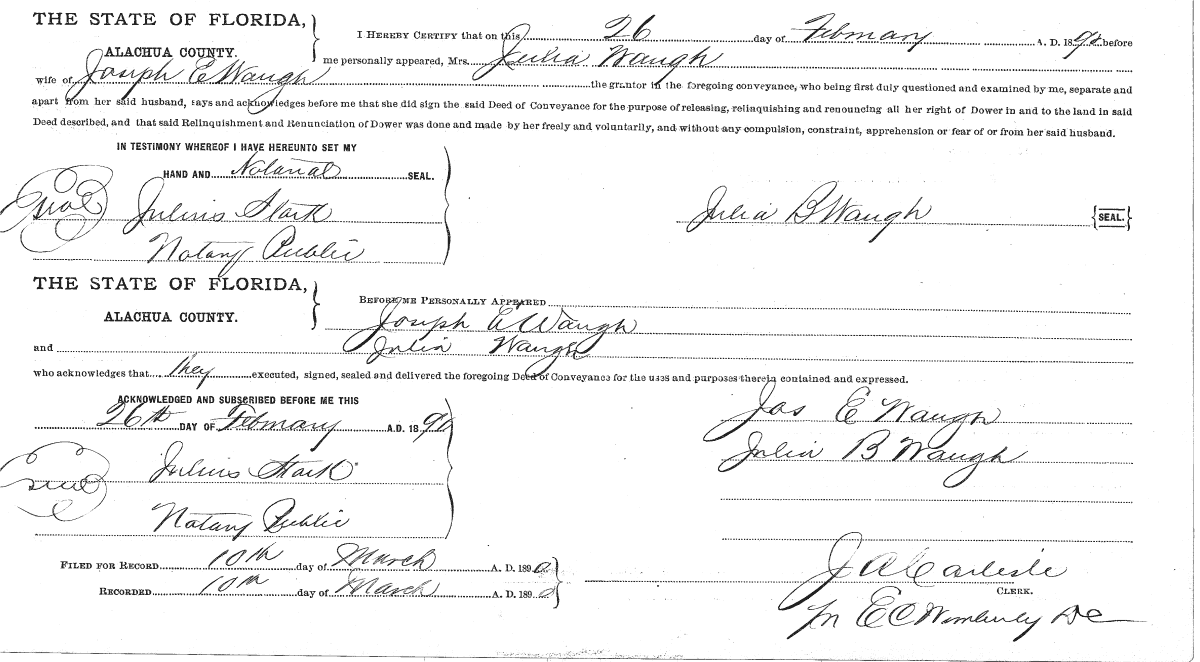 THE STATE OF FLORIDA,
ALACHUA COUNTY.
I HEREBY CERTIFY that on this 26 day of February A. D. 1890 before
me personally appeared, Mrs. Julia Waugh
wife of Joseph E Waugh the grantor in the foregoing conveyance, who being first duly questioned and examined by me, separate and
apart from her said husband, says and acknowledges before me that she did sign the said Deed of Conveyance for the purpose of releasing, relinquishing and renouncing all her right of Dower in and to the land in said
Deed described, and that said Relinquishment and Renunciation of Dower was done and made by her freely and voluntarily, and without any compulsion, constraint, apprehension or fear of or from her said husband.
IN TESTIMONY WHEREOF I HAVE HEREUNTO SET MY
HAND AND Notarial SEAL.
Seal Julius Stark
Notary Public
Julia B Waugh {SEAL.}
THE STATE OF FLORIDA,
ALACHUA COUNTY.
BEFORE ME PERSONALLY APPEARED
Joseph E Waugh
and Julia Waugh
who acknowledges that they executed, signed, sealed and delivered the foregoing Deed of Conveyance for the uses and purposes therein contained and expressed.
ACKNOWLEDGED AND SUBSCRIBED BEFORE ME THIS
26th DAY OF February A.D. 1890
Seal Julius Stark
Notary Public
Jos E Waugh
Julia B Waugh
FILED FOR RECORD 10th day of March A. D. 1890
RECORDED 10th day of March A. D. 1890
J A Carlisle
CLERK.
E C Wimberly DC